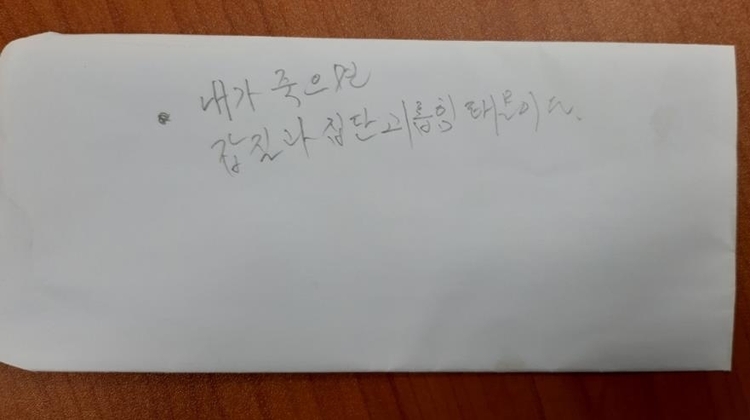 내가 죽으면
갑질과 집단괴롭힘 때문이다.